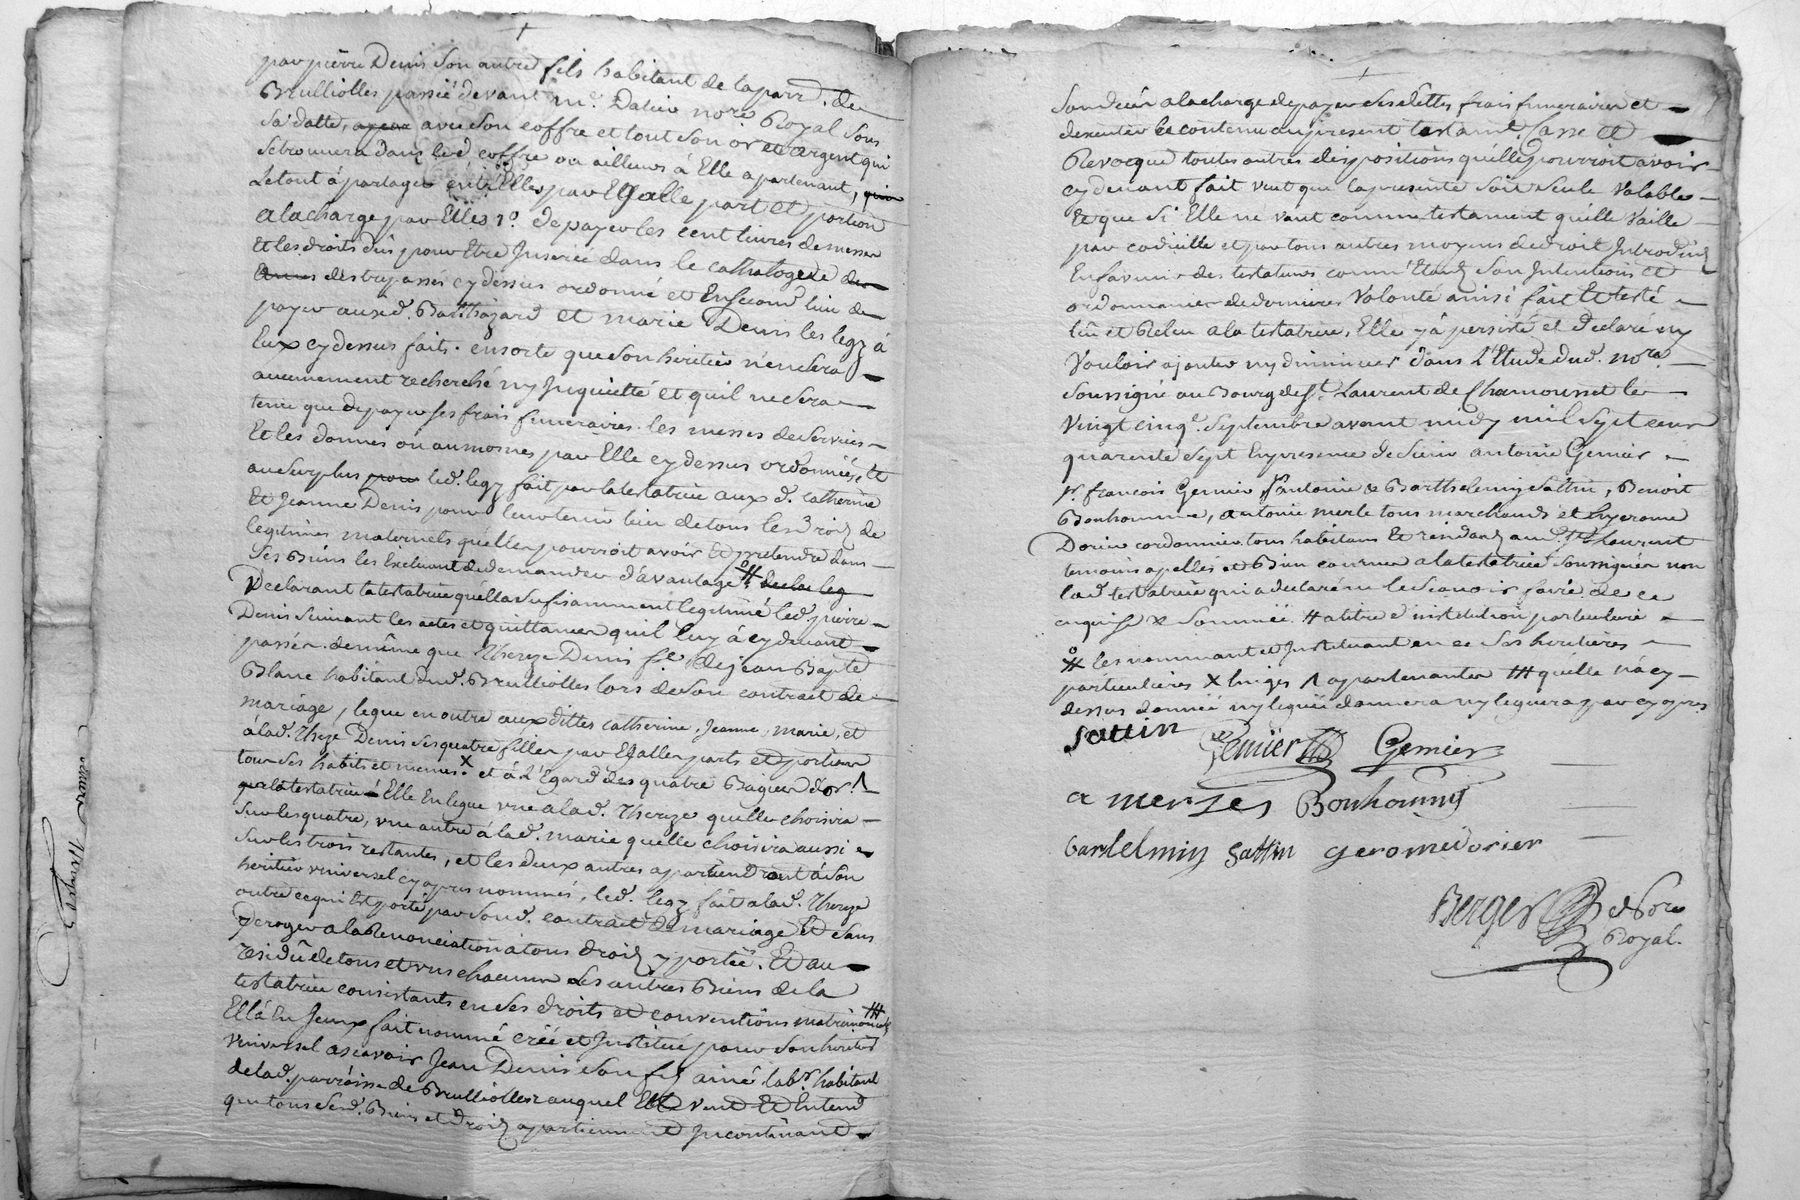 par pierre Denis son autre fils habitant de la parr. de
Brulliolles passé devant me. Dalin nore Royal sous
sa datte, avec son coffre et tout son or et argent qui
se trouvera dans led. coffre ou ailleurs à Elle apartenant,
Le tout à partager entr'Elles par Egalle part et portion
a la charge par Elles 1o. de payer les cent livres de messes
Et les droits dus pour Etre Inserée dans le cathaloge de
des trepassés cy dessus ordonné et En second lieu de
payer auxd. Balthazard et marie Denis les legz à
Eux cy dessus faits. en sorte que son heritier n'en sera
aucunement recherché ny Inquietté et quil ne sera
tenu que de payer ses frais funeraires. les messes de services
Et les donnes ou aumosnes par Elle cy dessus ordonnées, et
au surplus led. legz fait par la testatrice aux d. Catherine
Et Jeanne Denis pour leur tenir lieu de tous les droitz de
legitimes maternels quelles pourroit avoir Et pretendre dans
ses Biens les Excluant de demander d'avantage
Declarant la testatrice quelle a sufisamment legitimé led. pierre
Denis suivant les actes et quittances quil luy à cy devant
passés. de même que Thereze Denis fe. de jean Bapte
Blanc habitant dud. Brulliolles lors de son contrait de
mariage, legue en outre aux dittes Catherine, Jeanne, marie, et
à lad. Theze Denis ses quatre filles par Egalles parts et portion
tous ses habits et menus x et à l'Egard des quatre Bagues d'or. Λ
Elle En legue une a lad. Thereze quelle choisira
sur les quatre, une autre à lad. marie quelle choisira aussi
sur les trois restantes, et les deux autres apartiendront à son
heritier universel cy apres nommés, led. legz fait a lad. Thereze
outre ce qui Est porté par sond. contrait de mariage Et sans
Deroger a la Renonciation à tous droitz y portée. Et au
residû de tous et uns chacuns Les autres Biens de la
testatrice consistants en ses droits et conventions matrimoniales
Ella En Iceux fait nommé créé et Institué pour son heritier
universel ascavoir Jean Denis son fils ainé labr. habitant
de lad. parroisse de Brulliolles auquel Elle veut Et Entend
que tous sesd. Biens et droitz apartiennent Incontinant
son deces a la charge de payer ses dettes, frais funeraires et
d'executer le contenu au present testamt. Casse et
Revocque toutes autres dispositions quelle pourroit avoir
cy devant fait veut que la presente soit seule valable
Et que si Elle ne vaut comme testament quelle vaille
par codicille et par tous autres moyens de droit Introduitz
En faveur des testateurs comm'Etant son Intentions et
ordonnances de dernieres volonté ainsi fait Et testé
leu et Releu a la testatrice, Elle y à persisté et declaré ny
vouloir ajouter ny diminuer dans l'Etude dud. nore.
soussigné au Bourg de St. Laurent de Chamousset le
Vingt cinqe. Septembre avant midy mil sept cens
quarente sept En presence de Sieur antoine Gemier
sr. françois Gemier, sr antoine & Barthelemy Sattin, Benoit
Bonhomme, antoine merle tous marchands et hyerome
Dorier cordonnier tous habitans Et residantz aud. St. Laurent
temoins apelles et Bien connus a la testatrice soussignés non
lad. testatrice qui a declaré ne le scavoir faire de ce
enquise & sommée. # a titre d'institution particuliere
# les nommant et Instituant en ce ses heritieres
particulieres x linges Λ apartenantes ## quelle n'a cy
dessus donnée ny leguée donnera ny leguera par cy apres
Sattin Gemier Gemier
a merles Bonhomme
bartelmiy Sattin geromedorier
Berger
Royal.